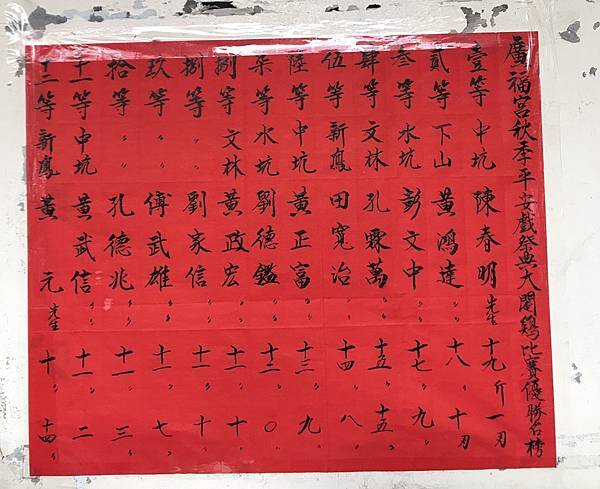 廣福宮秋季平安戲祭典大閹鷄比賽優勝名榜
壹等 中坑 陳春明先生 十九斤一刃
貳等 下山 黃鴻達〃〃 十八〃十刃
叁等 水坑 彭文中〃〃 十七〃九〃
肆等 文林 孔霖萬〃〃 十五〃十五〃
伍等 新鳳 田寬治〃〃 十四〃八〃
陸等 中坑 黃正富〃〃 十三〃九〃
柒等 水坑 劉德鑑〃〃 十二〃〇〃
捌等 文林 黃政宏〃〃 十一〃十〃
捌等 劉家信〃〃 十一〃十〃
玖等 〃〃 傅武雄〃〃 十一〃七〃
拾等 〃〃 孔德兆〃〃 十一〃三〃
十一等 中坑 黃武信〃〃 十一〃二〃
十二等 新鳳 黃元先生 十〃十四〃